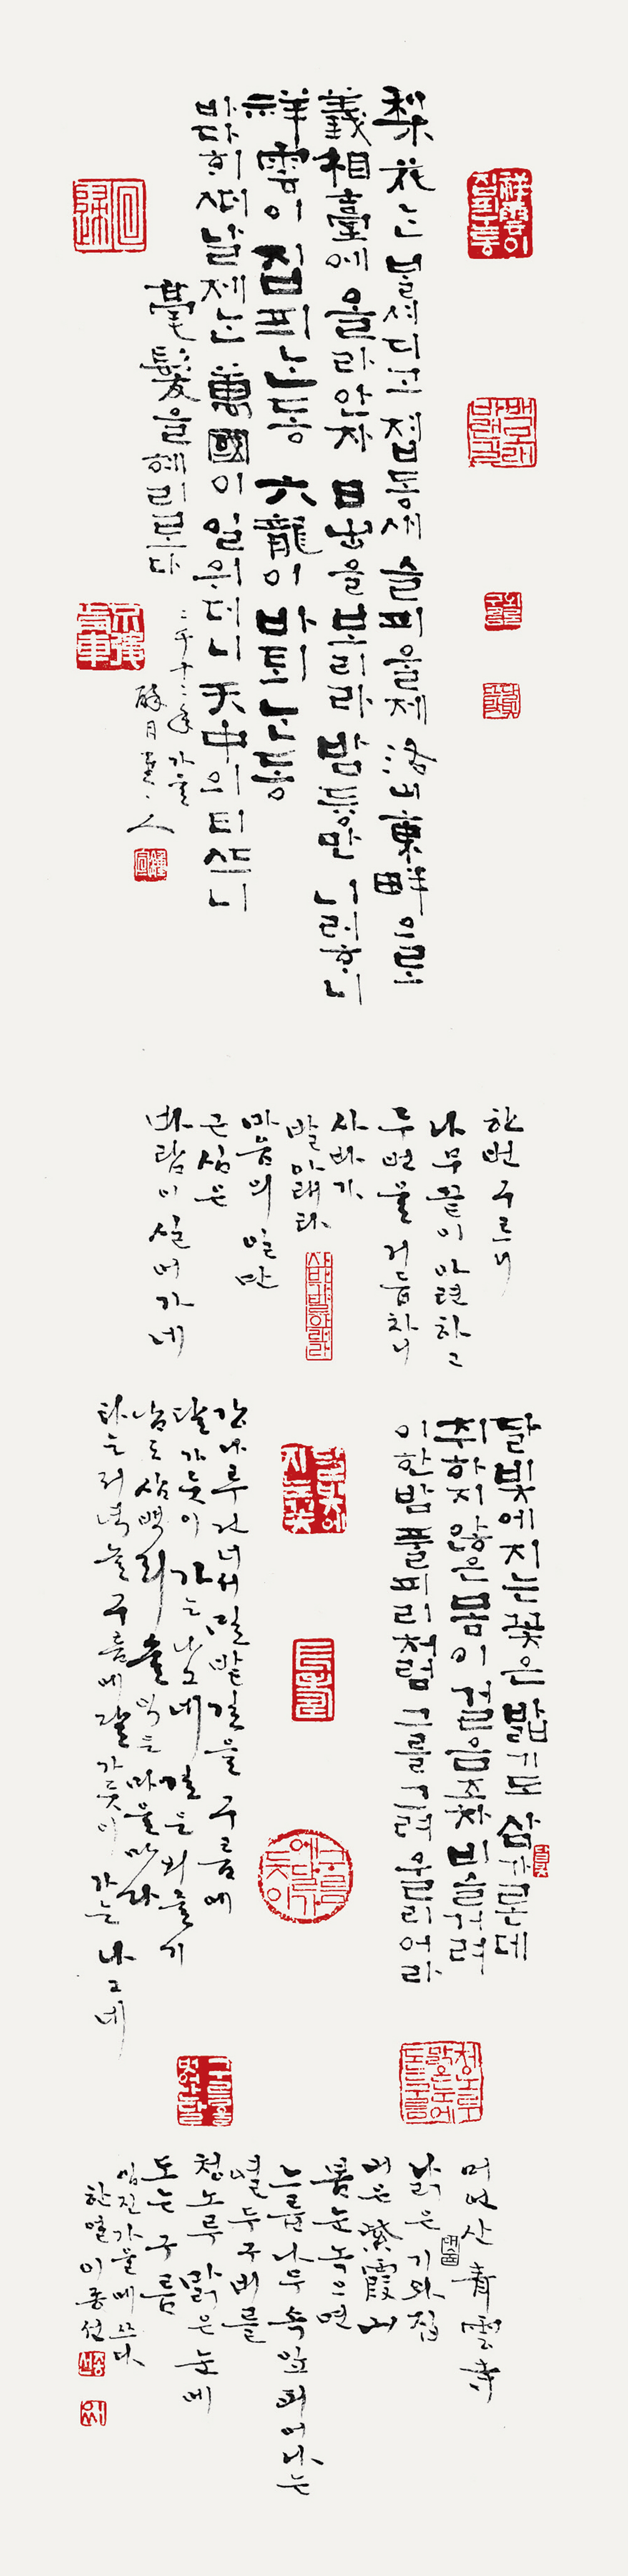 梨花는 볼셔 디고 졉동새 슬피 울 제 洛山東畔으로
義相臺예 올라 안자 日出을 보리라 밤듕만 니러ᄒᆞ니
祥雲이 집피ᄂᆞᆫ 동 六龍이 바퇴ᄂᆞᆫ 동
바다ᄒᆡ ᄯᅥ날 제ᄂᆞᆫ 萬國이 일위더니 天中의 티ᄯᅳ니
毫髮을 혜리로다
二千十二年 가을
醉月堂主人
한번 구르니
나무 끝이 아련하고
두 번을 거듭차니
사바가
발 아래라
마음의 일만
근심은
바람이 실어가네
달빛에 지는 꽃은 밟기도 삼가론데
취하지 않은 몸이 걸음조차 비슬거려
이 한밤 풀피리처럼 그를 그려 울리어라
강나루 건너서 밀밭 길을 구름에
달 가듯이 가는 나그네 길은 외줄기
남도 삼백리 술 익는 마을마다
타는 저녁놀 구름에 달 가듯이 가는 나그네
머언 산 青雲寺
낡은 기와집
山은 紫霞山
봄눈 녹으면
느릅나무 속잎 피어나는
열두 구비를
청노루 맑은 눈에
도는 구름
임진 가을에 쓰다
한얼 이종선